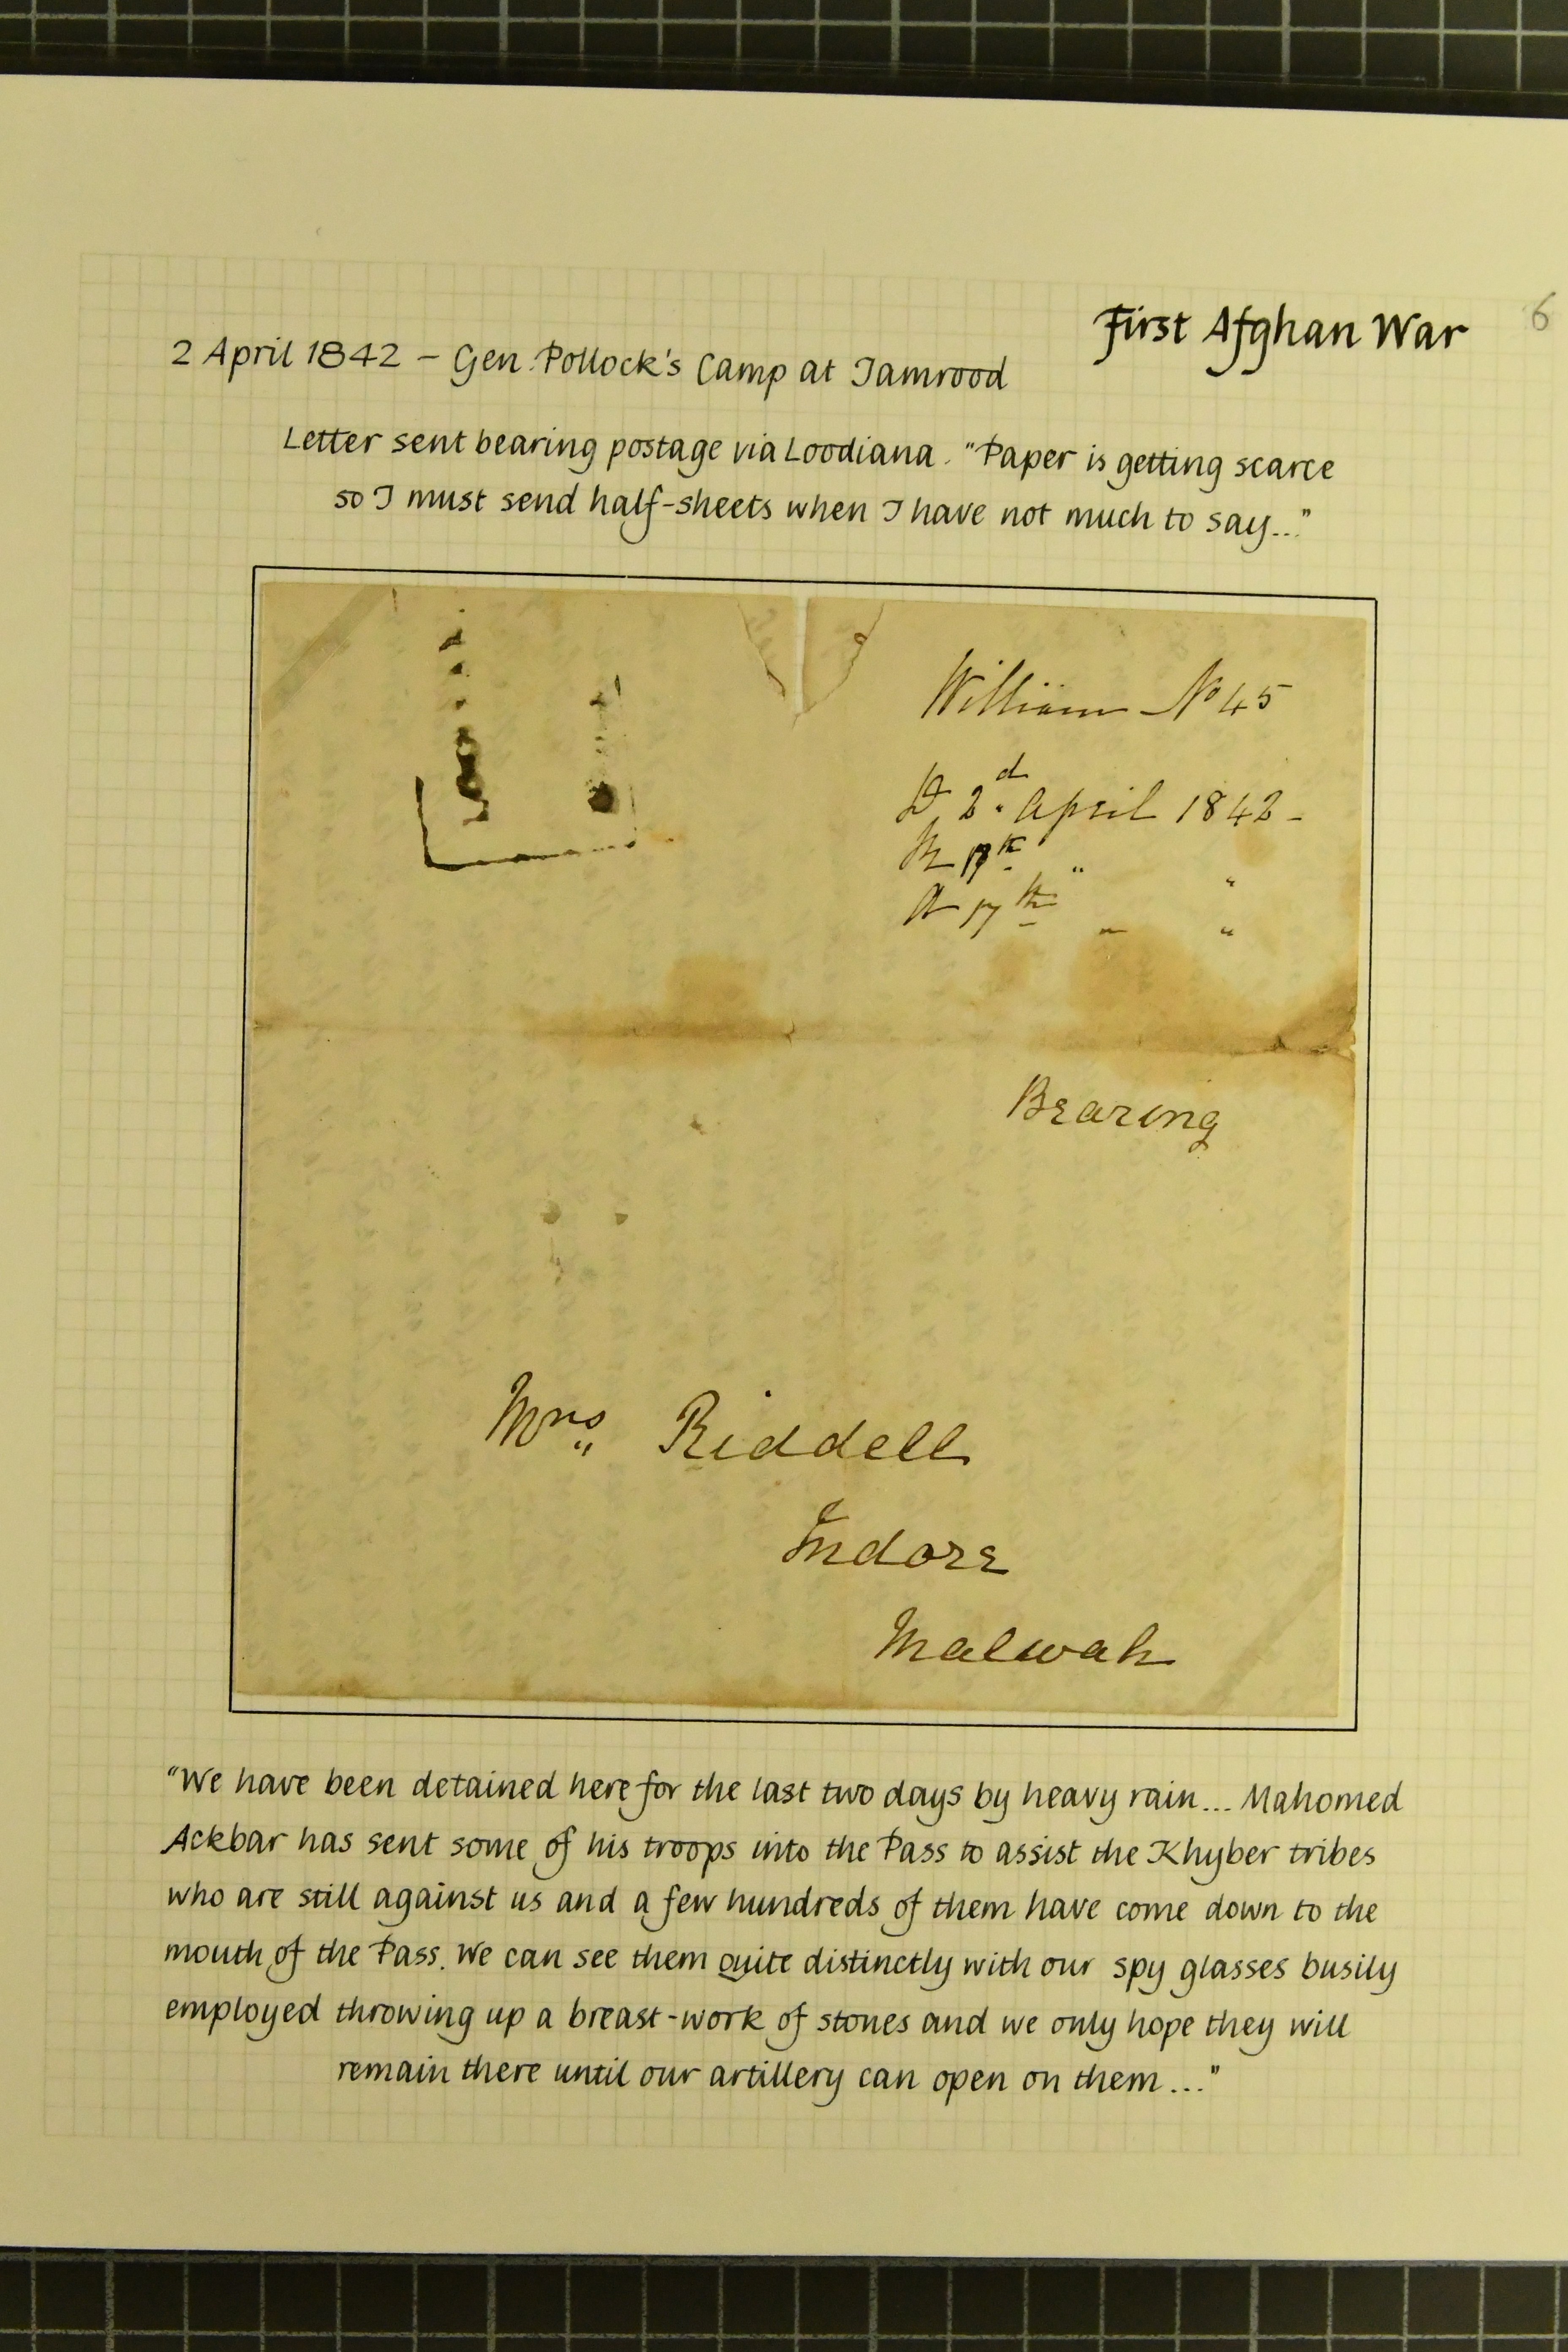 First Afghan War
6
2 April 1842 – Gen. Pollock's Camp at Jamrood
Letter sent bearing postage via Loodiana. "Paper is getting scarce
so I must send half-sheets when I have not much to say..."
William No 45
D 2d April 1842 -
17th " "
A 17th " "
Bearing
Mrs Riddell
Indore
Malwah
"We have been detained here for the last two days by heavy rain... Mahomed
Ackbar has sent some of his troops into the Pass to assist the Khyber tribes
who are still against us and a few hundreds of them have come down to the
mouth of the Pass. We can see them quite distinctly with our spy glasses busily
employed throwing up a breast-work of stones and we only hope they will
remain there until our artillery can open on them..."